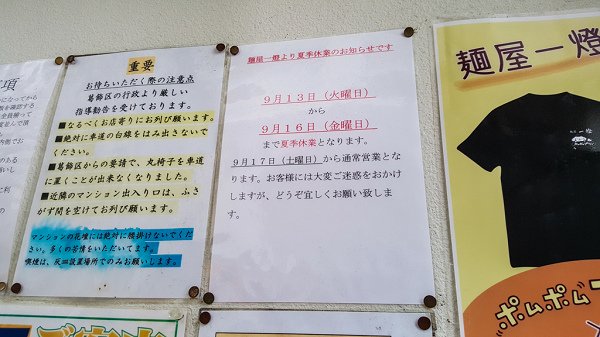 項
重要
お待ちいただく際の注意点
葛飾区の行政より厳しい
指導勧告を受けております。
■なるべくお店寄りにお列び願います。
■絶対に車道の白線をはみ出さないで
ください。
■葛飾区からの要請で、丸椅子を車道
に置くことが出来なくなりました。
■近隣のマンション出入り口は、ふさ
がず間を空けてお列び願います。
マンションの花壇には絶対に腰掛けないでくだ
さい。多くの苦情をいただいてます。
喫煙は、灰皿設置場所でのみお願いします。
麺屋一燈より夏季休業のお知らせです
9月13日（火曜日）
から
9月16日（金曜日）
まで夏季休業となります。
9月17日（土曜日）から通常営業とな
ります。お客様には大変ご迷惑をおかけ
しますが、どうぞ宜しくお願い致しま
す。
麺屋一燈
ポムポム